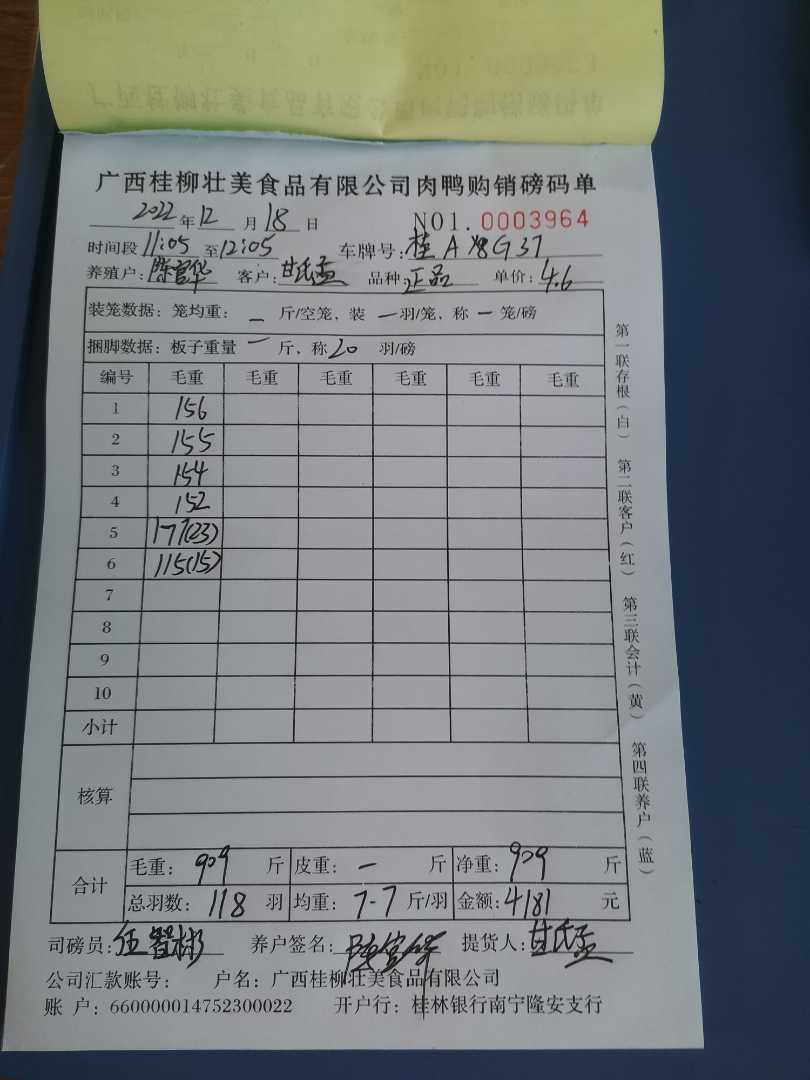 广西桂柳壮美食品有限公司肉鸭购销磅码单
2022年12月18日 NO1.0003964
时间段11:05至12:05 车牌号:桂A G37
养殖户: 客户:甘氏孟 品种:正品 单价:4.6
装笼数据:笼均重:— 斤/空笼、装 — 羽/笼、称 — 笼/磅
捆脚数据:板子重量 — 斤、称20 羽/磅
编号 毛重 毛重 毛重 毛重 毛重 毛重
1 156
2 155
3 154
4 152
5 177(23)
6 115(15)
7
8
9
10
小计
核算
合计
毛重:909 斤 皮重:— 斤 净重:909 斤
总羽数:118 羽 均重:7-7 斤/羽 金额:4181 元
司磅员:伍智彬 养户签名: 提货人:甘氏孟
公司汇款账号: 户名:广西桂柳壮美食品有限公司
账 户:660000014752300022 开户行:桂林银行南宁隆安支行
第一联存根(白) 第二联客户(红) 第三联会计(黄) 第四联养户(蓝)